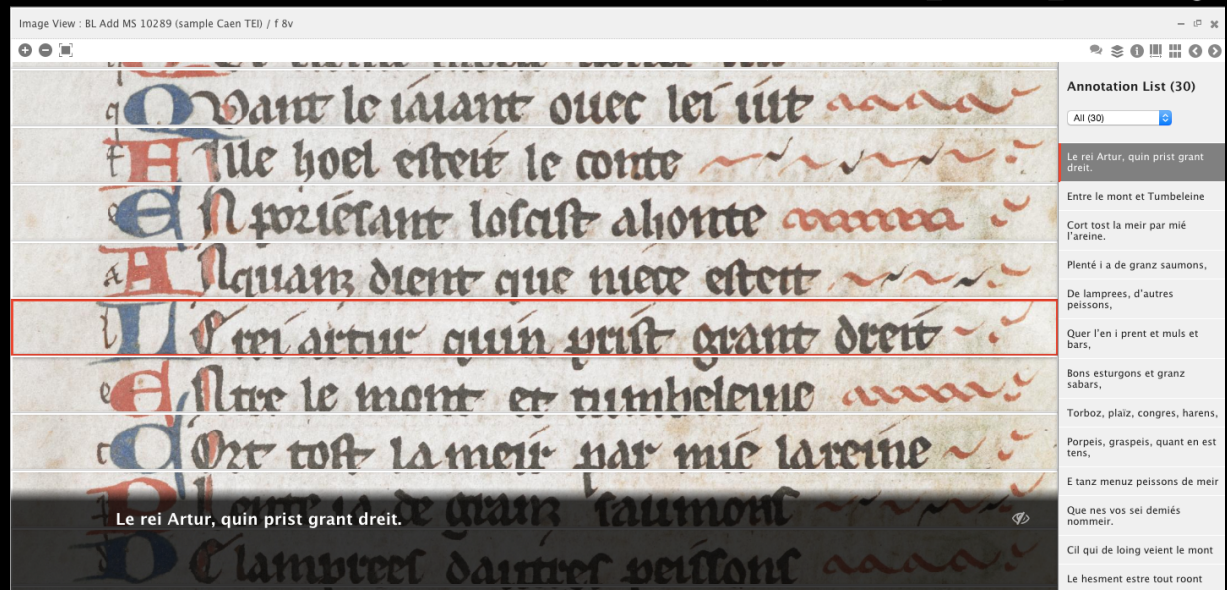 Image View : BL Add MS 10289 (sample Caen TEI) / f 8v
q Quant le iaiant ouec lei iut
f Fille hoel esteit le conte
e En poriésant loscist ahonte
a Alquanz dient que niece esteit
l Le rei artur quin prist grant dreit
e Entre le mont et tumbeleine
c Cort tost la meir par mie lareine
Plente ia de granz saumons
De lamprees dautres peissons
Le rei Artur, quin prist grant dreit.
Annotation List (30)
All (30)
Le rei Artur, quin prist grant
dreit.
Entre le mont et Tumbeleine
Cort tost la meir par mié
l'areine.
Plenté i a de granz saumons,
De lamprees, d'autres
peissons,
Quer l'en i prent et muls et
bars,
Bons esturgons et granz
sabars,
Torboz, plaiz, congres, harens,
Porpeis, graspeis, quant en est
tens,
E tanz menuz peissons de meir
Que nes vos sei demiés
nommeir.
Cil qui de loing veient le mont
Le hesment estre tout roont